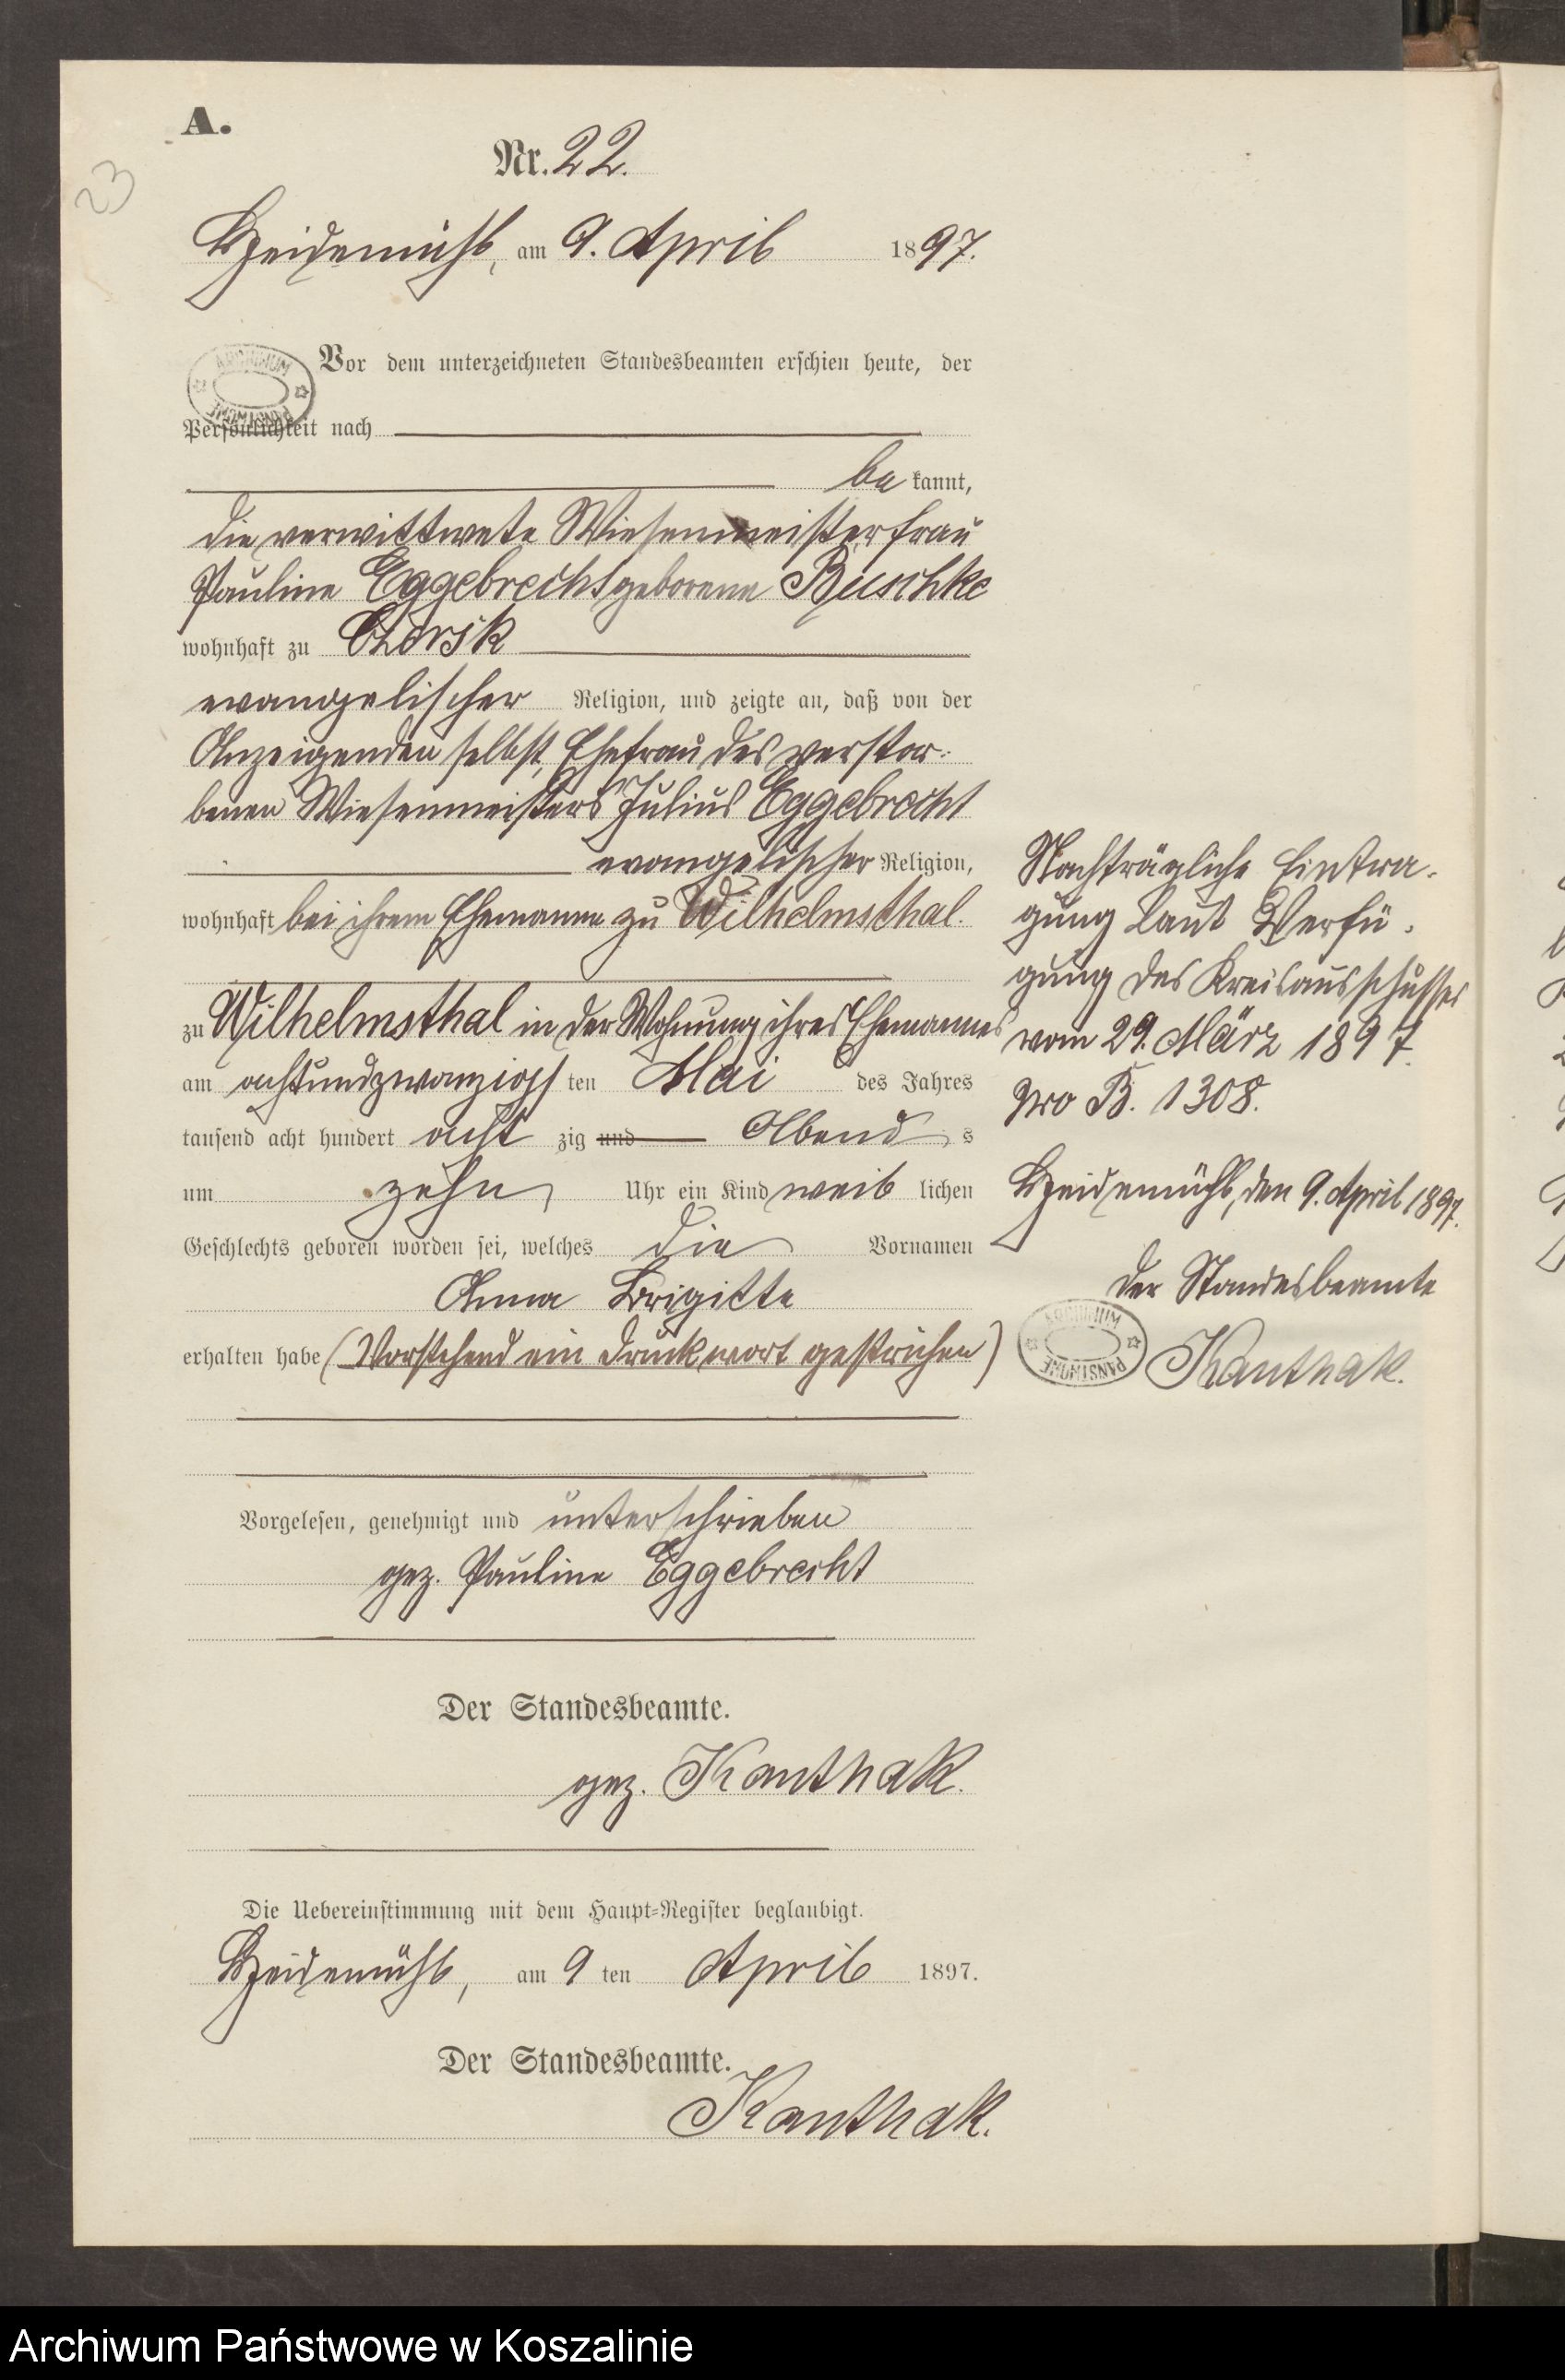 A.
23
Nr. 22.
Heidemühl, am 9. April 1897.
Vor dem unterzeichneten Standesbeamten erschien heute, der
Persönlichkeit nach
be kannt,
die verwittwete Wiesenmeisterfrau
Pauline Eggebrecht geborene Buschke
wohnhaft zu Czersk
evangelischer Religion, und zeigte an, daß von der
Anzeigenden selbst, Ehefrau des verstor-
benen Wiesenmeisters Julius Eggebrecht
evangelischer Religion,
wohnhaft bei ihrem Ehemanne zu Wilhelmsthal.
zu Wilhelmsthal in der Wohnung ihres Ehemannes
am achtundzwanzigs ten Mai des Jahres
tausend acht hundert acht zig und Abend s
um zehn Uhr ein Kind weib lichen
Geschlechts geboren worden sei, welches die Vornamen
Anna Brigitte
erhalten habe (Vorstehend ein Druckwort gestrichen)
Vorgelesen, genehmigt und unterschrieben
gez. Pauline Eggebrecht
Der Standesbeamte.
gez. Kanthak.
Die Uebereinstimmung mit dem Haupt-Register beglaubigt.
Heidemühl, am 9 ten April 1897.
Der Standesbeamte.
Kanthak.
Nachträgliche Eintra-
gung laut Verfü-
gung des Kreisausschusses
vom 29. März 1897.
Nro B. 1308.
Heidemühl, den 9. April 1897.
Der Standesbeamte
ARCHIWUM PAŃSTWOWE
Kanthak.
ARCHIWUM PAŃSTWOWE
Archiwum Państwowe w Koszalinie